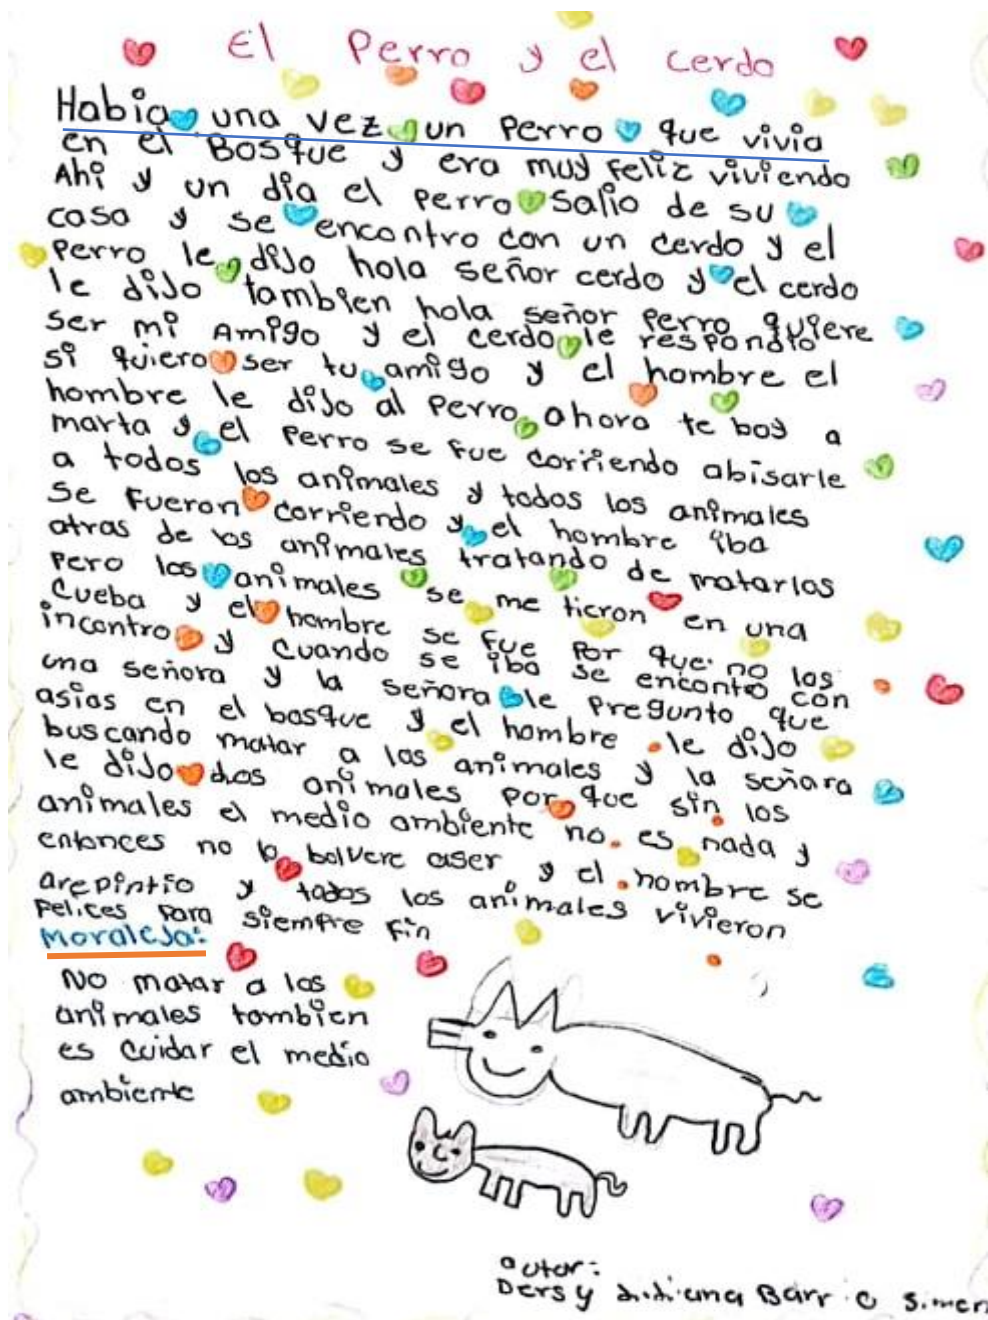 El Perro y el cerdo
Habia una vez un Perro que vivia
en el Bosque y era muy Feliz viviendo
Ahi y un dia el Perro salio de su
casa y se encontro con un cerdo y el
Perro le dijo hola señor cerdo y el cerdo
le dijo tambien hola señor Perro quiere
ser mi Amigo y el cerdo le respondio
si quiero ser tu amigo y el hombre el
hombre le dijo al Perro ahora te boy a
marta y el Perro se fue corriendo abisarle
a todos los animales y todos los animales
se fueron corriendo y el hombre iba
atras de los animales tratando de matarlos
Pero los animales se me tieron en una
Cueba y el hombre se fue Por que no los
incontro y Cuando se iba se enconto con
una señora y la señora le Pregunto que
asias en el bosque y el hombre le dijo
buscando matar a los animales y la señora
le dijo los animales por que sin los
animales el medio ambiente no es nada y
entonces no lo bolvere aser y el hombre se
arepintio y todos los animales vivieron
Felices Para siempre Fin
Moraleja:
No matar a los
animales tambien
es Cuidar el medio
ambiente
autor:
Dersy Barrio